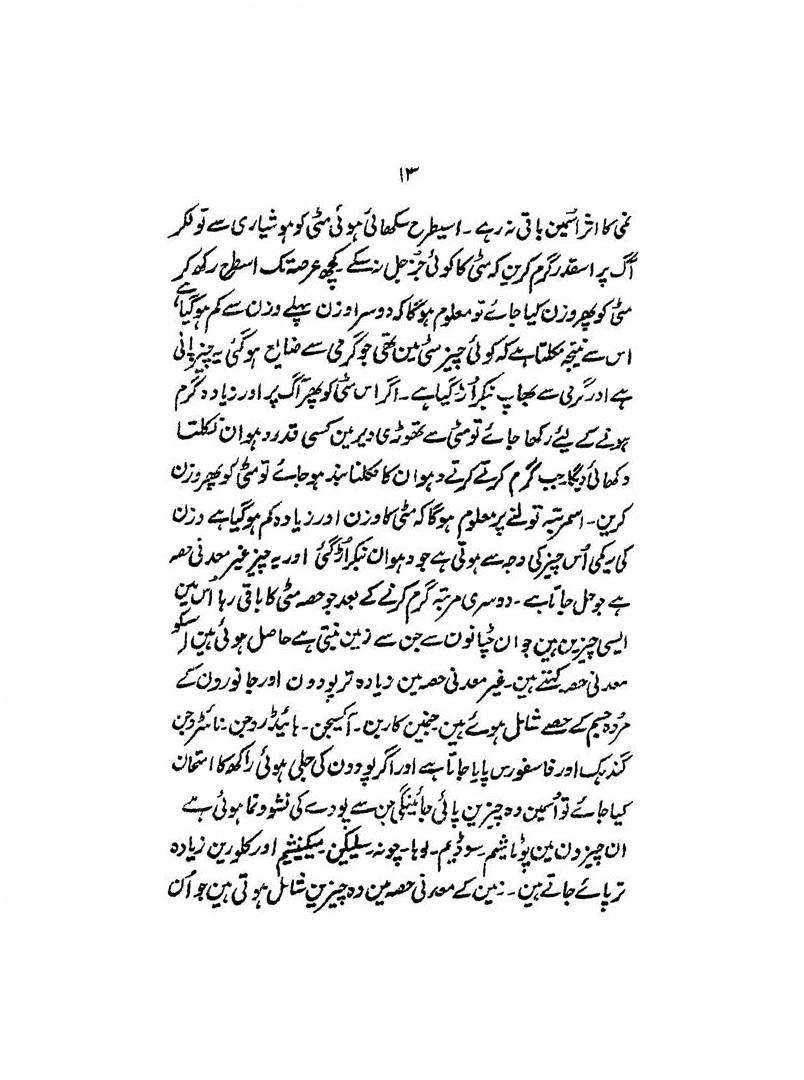 ۱۳
نمی کا اثر اسمین باقی نہ رہے ۔ اسیطرح سکھائی ہوئی مٹی کو ہوشیاری سے تولکر
آگ پر اسقدر گرم کرین کہ مٹی کا کوئی جز جل نہ سکے کچھ عرصہ تک اسطرح رکھ کر
مٹی کو پھر وزن کیا جائے تو معلوم ہوگا کہ دوسرا وزن پہلے وزن سے کم ہوگیا ہے
اس سے نتیجہ نکلتا ہے کہ کوئی چیز مٹی مین تھی جو گرمی سے ضایع ہوگئی یہ چیز پانی
ہے اور گرمی سے بھاپ بنکر اڑ گیا ہے ۔ اگر اس مٹی کو پھر آگ پر اور زیادہ گرم
ہونے کے لیئے رکھا جائے تو مٹی سے تھوڑی دیر مین کسی قدر دہوان نکلتا
دکھائی دیگا جب گرم کرتے کرتے دہوان کا نکلنا بند ہو جائے تو مٹی کو پھر وزن
کرین ۔ اسمرتبہ تولنے پر معلوم ہوگا کہ مٹی کا وزن اور زیادہ کم ہوگیا ہے وزن
کی یہ کمی اُس چیز کی وجہ سے ہوتی ہے جو دہوان بنکر اُڑ گئی اور یہ چیز غیر معدنی حصہ
ہے جو جل جاتا ہے ۔ دوسری مرتبہ گرم کرنے کے بعد جو حصہ مٹی کا باقی رہا اُس مین
ایسی چیزین ہین جو ان چٹانون سے جن سے زمین بنتی ہے حاصل ہوئی ہین اسکو
معدنی حصہ کہتے ہین ۔ غیر معدنی حصہ مین زیادہ تر پودون اور جانورون کے
مردہ جسم کے حصے شامل ہوئے ہین جنمین کاربن ۔ آکسیجن ۔ ہائیڈروجن ۔ نائٹروجن
گندہک اور فاسفورس پایا جاتا ہے اور اگر پودون کی جلی ہوئی راکھ کا امتحان
کیا جائے تو اُسمین وہ چیزین پائی جائینگی جن سے پودے کی نشوونما ہوئی ہے
ان چیزون مین پوٹاشیم سوڈیم ۔ لوہا ۔ چونہ سلیکن میگنیشیم اور کلورین زیادہ
تر پائے جاتے ہین ۔ زمین کے معدنی حصہ مین وہ چیزین شامل ہوتی ہین جو اُن